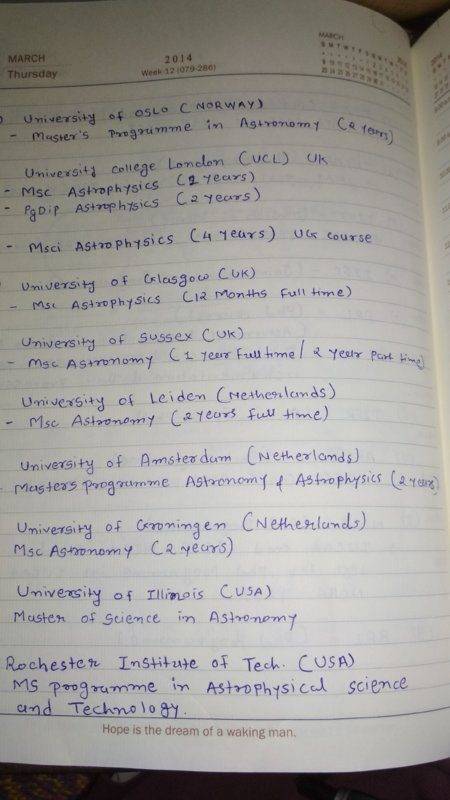 MARCH
Thursday
2014
Week-12 (079-286)
MARCH
University of OSLO (NORWAY)
- Master's Programme in Astronomy (2 years)
University College London (UCL) UK
- Msc Astrophysics (2 years)
- PgDip Astrophysics (2 years)
- Msci Astrophysics (4 years) UG course
University of Glasgow (UK)
- Msc Astrophysics (12 Months full time)
University of Sussex (UK)
- Msc Astronomy (1 year Full time / 2 year part time)
University of Leiden (Netherlands)
- Msc Astronomy (2 years full time)
University of Amsterdam (Netherlands)
- Masters programme Astronomy & Astrophysics (2 years)
University of Groningen (Netherlands)
Msc Astronomy (2 years)
University of Illinois (USA)
Master of science in Astronomy
Rochester Institute of Tech. (USA)
MS programme in Astrophysical science
and Technology.
Hope is the dream of a waking man.